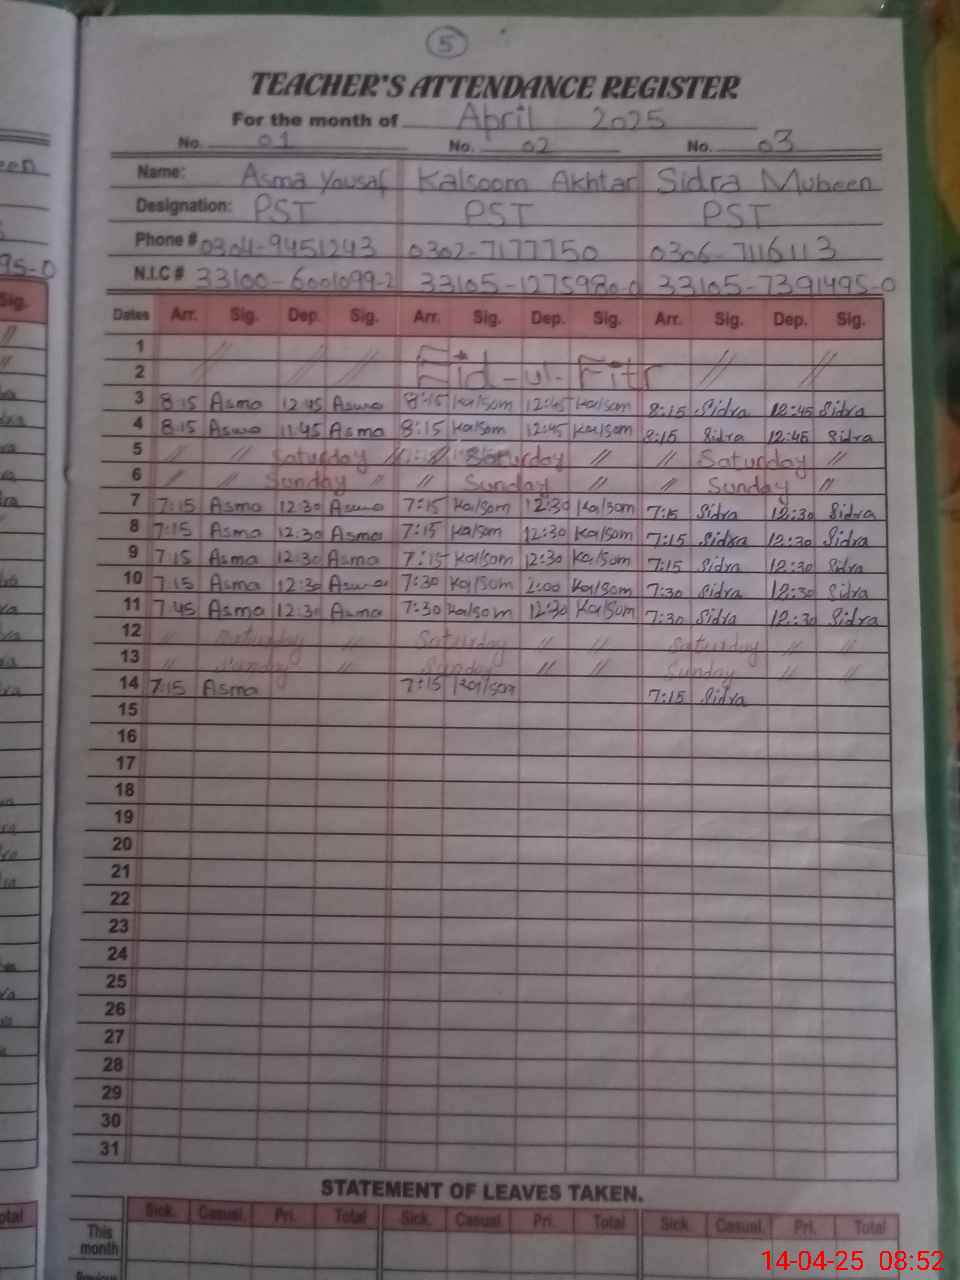 5
TEACHER'S ATTENDANCE REGISTER
For the month of April 2025
No. 01 No. 02 No. 03
Name: Asma Yousaf Kalsoom Akhtar Sidra Mubeen
Designation: PST PST PST
Phone # 0304-9451243 0302-7177750 0306-7116113
N.I.C # 33100-6001099-2 33105-1275980-0 33105-7391495-0
Dates Arr. Sig. Dep. Sig. Arr. Sig. Dep. Sig. Arr. Sig. Dep. Sig.
1 // // // // //
2 Eid-ul-Fitr
3 8:15 Asma 12:45 Asma 8:15 Kalsom 12:45 Kalsom 8:15 Sidra 12:45 Sidra
4 8:15 Asma 11:45 Asma 8:15 Kalsom 12:45 Kalsom 8:15 Sidra 12:45 Sidra
5 // // Saturday // // Saturday // // Saturday //
6 // // Sunday // // Sunday // // Sunday //
7 7:15 Asma 12:30 Asma 7:15 Kalsom 12:30 Kalsom 7:15 Sidra 12:30 Sidra
8 7:15 Asma 12:30 Asma 7:15 Kalsom 12:30 Kalsom 7:15 Sidra 12:30 Sidra
9 7:15 Asma 12:30 Asma 7:15 Kalsom 12:30 Kalsom 7:15 Sidra 12:30 Sidra
10 7:15 Asma 12:30 Asma 7:30 Kalsom 2:00 Kalsom 7:30 Sidra 12:30 Sidra
11 7:45 Asma 12:30 Asma 7:30 Kalsom 12:30 Kalsom 7:30 Sidra 12:30 Sidra
12 // Saturday // Saturday // // Saturday // //
13 // Sunday // Sunday // // Sunday // //
14 7:15 Asma 7:15 Kalsom 7:15 Sidra
15
16
17
18
19
20
21
22
23
24
25
26
27
28
29
30
31
STATEMENT OF LEAVES TAKEN.
Sick. Casual. Pri. Total Sick. Casual. Pri. Total Sick. Casual. Pri. Total
This month
14-04-25 08:52